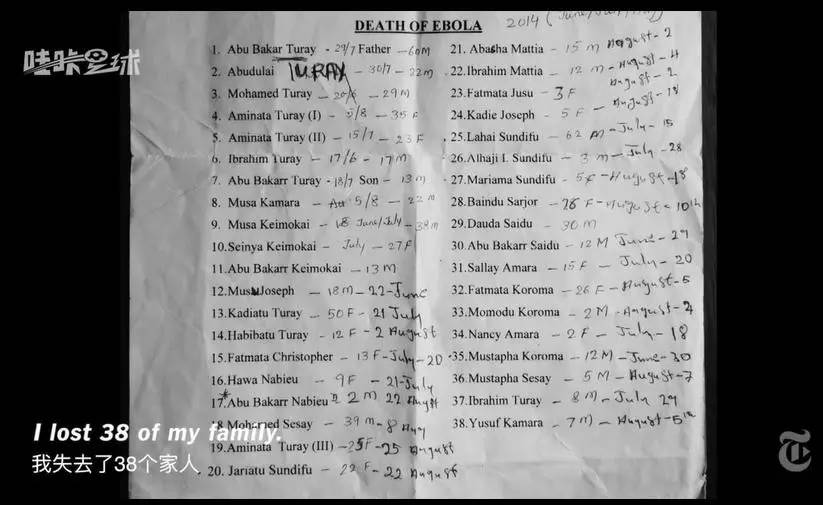 DEATH OF EBOLA
2014 (June/July/Aug)
哇咔星球
1. Abu Bakar Turay - 29/7 Father - 60M
2. Abudulai TURAY - 30/7 - 22M
3. Mohamed Turay - 20/6 - 29M
4. Aminata Turay (I) - 5/8 - 35F
5. Aminata Turay (II) - 15/7 - 23F
6. Ibrahim Turay - 17/6 - 17M
7. Abu Bakarr Turay - 18/7 Son - 13M
8. Musa Kamara - 5/8 - 22M
9. Musa Keimokai - 18 June/July - 38M
10.Seinya Keimokai - July - 27F
11.Abu Bakarr Keimokai - 13M
12.Musa Joseph - 18M - 22-June
13.Kadiatu Turay - 50F - 21 July
14.Habibatu Turay - 12F - 2 August
15.Fatmata Christopher - 13F - July - 20
16.Hawa Nabieu - 9F - 21-July
17.Abu Bakarr Nabieu 2M 22 August
18.Mohamed Sesay - 39M - 8 Aug
19.Aminata Turay (III) - 25F - 25 August
20. Jariatu Sundifu - 22F - 22 August
21. Abasha Mattia - 15M August - 2
22.Ibrahim Mattia - 12M - August - 4
23.Fatmata Jusu - 3F August - 2
24.Kadie Joseph - 5F - August - 18
25.Lahai Sundifu - 62M - July - 15
26.Alhaji I. Sundifu - 3M - July - 28
27.Mariama Sundifu - 5F - August - 18
28.Baindu Sarjor - F - August - 10th
29.Dauda Saidu - 30M
30.Abu Bakarr Saidu - 12M June - 29
31.Sallay Amara - 15F - July - 20
32.Fatmata Koroma - 26F - August - 5
33.Momodu Koroma - 2M - August - 2
34.Nancy Amara - 2F - July - 18
35.Mustapha Koroma - 12M - June - 30
36.Mustapha Sesay - 5M - August - 7
37.Ibrahim Turay - 8M - July 29
38.Yusuf Kamara - 7M - August - 5th
I lost 38 of my family.
我失去了38个家人